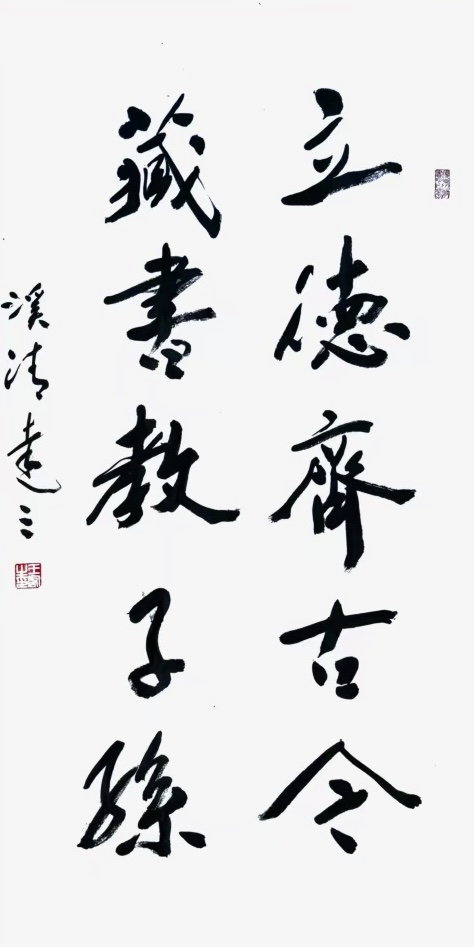 立德齊古今
藏書教子孫
溪清